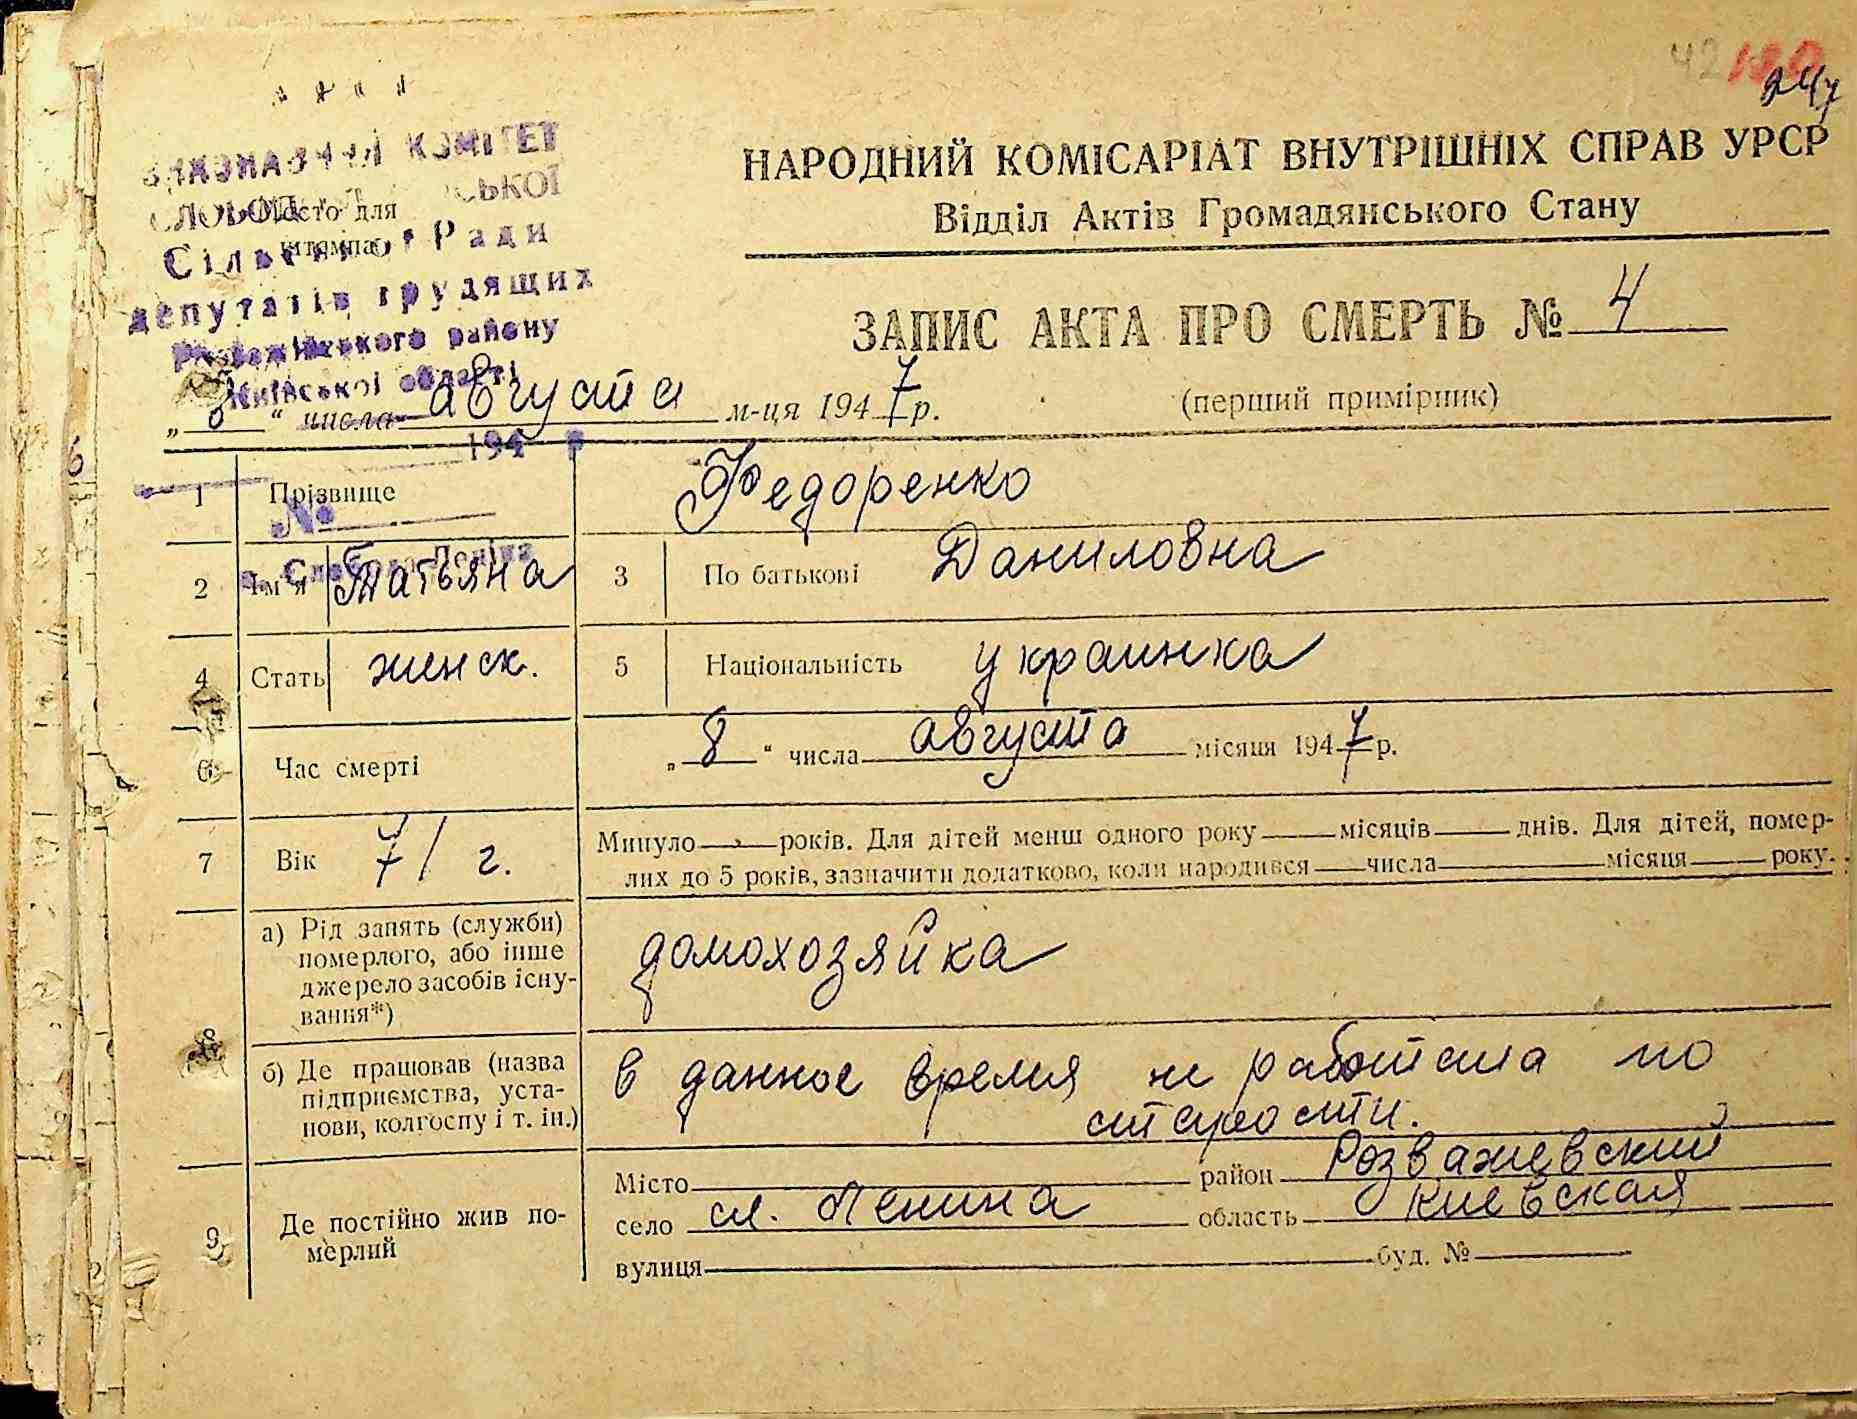 42 180
247
КОМІТЕТ
СЬКОЇ
Місто для
штампа
Сільської Ради
депутатів трудящих
району
Київської області
194 р
№
НАРОДНИЙ КОМІСАРІАТ ВНУТРІШНІХ СПРАВ УРСР
Відділ Актів Громадянського Стану
ЗАПИС АКТА ПРО СМЕРТЬ № 4
„ 8 “ числа августа м-ця 1947 р. (перший примірник)
1 Прізвище Федоренко
2 Ім'я Татьяна 3 По батькові Даниловна
4 Стать женск. 5 Національність украинка
6 Час смерті „ 8 “ числа августа місяця 1947 р.
7 Вік 71 г. Минуло — років. Для дітей менш одного року — місяців — днів. Для дітей, помер-
лих до 5 років, зазначити додатково, коли народився — числа — місяця — року.
8 а) Рід занять (служби)
померлого, або інше
джерело засобів існу-
вання*) домохозяйка
б) Де працював (назва
підприємства, уста-
нови, колгоспу і т. ін.) в данное время не работала по
старости.
9 Де постійно жив по-
мерлий
Місто район Розважевский
село сл. Ленина область Киевская
вулиця буд. №